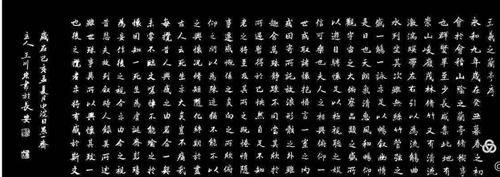 蘭亭序
永和九年歲在癸丑暮春之初
會於會稽山陰之蘭亭脩禊事
也群賢畢至少長咸集此地有
崇山峻嶺茂林脩竹又有清流
激湍暎帶左右引以為流觴曲
水列坐其次雖無絲竹管弦之
盛一觴一詠亦足以暢叙幽情
是日也天朗氣清惠風和暢仰
觀宇宙之大俯察品類之盛所
以遊目騁懷足以極視聽之娛
信可樂也夫人之相與俯仰一
世或取諸懷抱悟言一室之內
或因寄所託放浪形骸之外雖
趣舍萬殊靜躁不同當其欣於
所遇暫得於己快然自足不知
老之將至及其所之既倦情隨
事遷感慨係之矣向之所欣俛
仰之間以為陳迹猶不能不以
之興懷況脩短隨化終期於盡
古人云死生亦大矣豈不痛哉
每攬昔人興感之由若合一契
未嘗不臨文嗟悼不能喻之於
懷固知一死生為虛誕齊彭殤
為妄作後之視今亦由今之視
昔悲夫故列叙時人錄其所述
雖世殊事異所以興懷其致一
也後之攬者亦將有感於斯文
歲在己亥夏月中浣日
主人書於長安